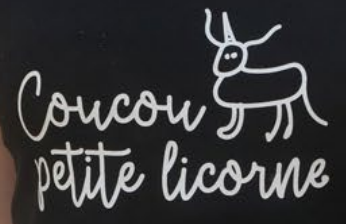 Coucou
petite licorne